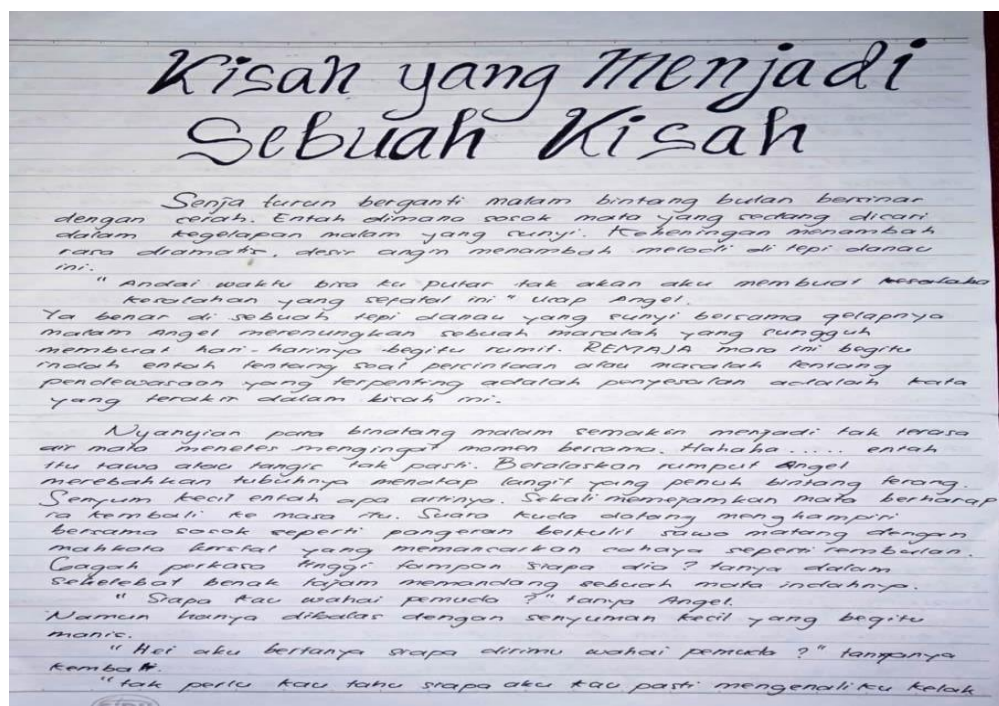 Kisah yang Menjadi
Sebuah Kisah
Senja turun berganti malam bintang bulan bersinar
dengan cerah. Entah dimana sosok mata yang sedang dicari
dalam kegelapan malam yang sunyi. Keheningan menambah
rasa dramatis, desir angin menambah melodi di tepi danau
ini.
" Andai waktu bisa ku putar tak akan aku membuat
kesalahan yang sefatal ini " ucap Angel.
Ya benar di sebuah tepi danau yang sunyi bersama gelapnya
malam Angel merenungkan sebuah masalah yang sungguh
membuat hari-harinya begitu rumit. REMAJA masa ini begitu
indah entah tentang soal percintaan atau masalah tentang
pendewasaan yang terpenting adalah penyesalan adalah kata
yang terakir dalam kisah ini.
Nyanyian para binatang malam semakin menjadi tak terasa
air mata menetes mengingat momen bersama. Hahaha..... entah
itu tawa atau tangis tak pasti. Beralaskan rumput Angel
merebahkan tubuhnya menatap langit yang penuh bintang terang.
Senyum kecil entah apa artinya. Sekali memejamkan mata berharap
ia kembali ke masa itu. Suara kuda datang menghampiri
bersama sosok seperti pangeran berkulit sawo matang dengan
mahkota kristal yang memancarkan cahaya seperti rembulan.
Gagah perkasa tinggi tampan siapa dia ? tanya dalam
sekelebat benak tajam memandang sebuah mata indahnya.
" Siapa kau wahai pemuda ?" tanya Angel.
Namun hanya dibalas dengan senyuman kecil yang begitu
manis.
" Hei aku bertanya siapa dirimu wahai pemuda ?" tanyanya
kembali.
" tak perlu kau tahu siapa aku kau pasti mengenali ku kelak